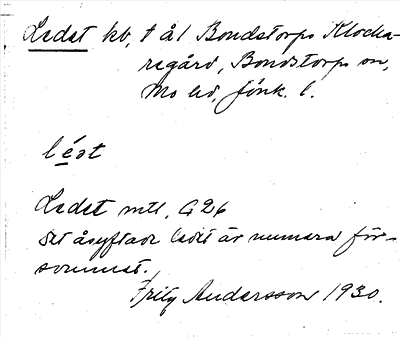 Ledet kb, t ål Bondstorps Klocka-
regård, Bondstorps sn,
Mo hd, Jönk. l.
léɘt
Ledet mtl, G26
Det åsyftade ledet är numera för-
svunnet.
Fritz Andersson 1930.